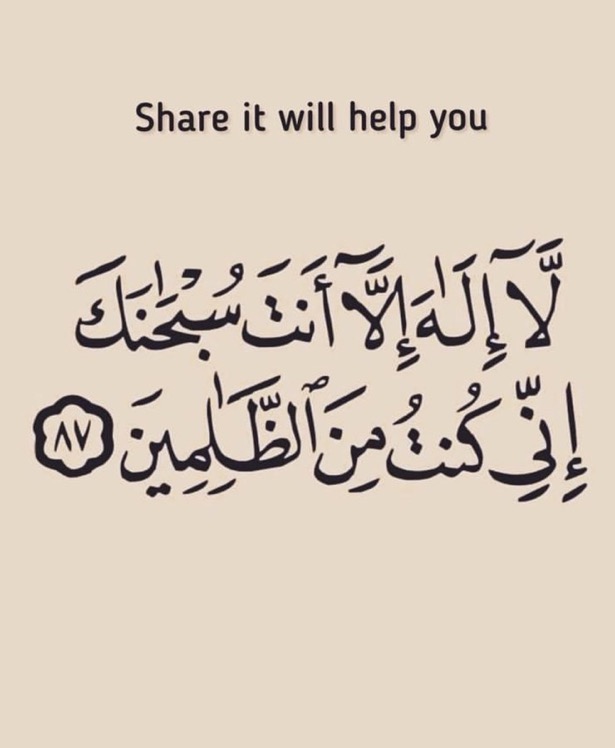 Share it will help you
لَّآ إِلَـٰهَ إِلَّآ أَنتَ سُبْحَـٰنَكَ
إِنِّى كُنتُ مِنَ ٱلظَّـٰلِمِينَ ٨٧